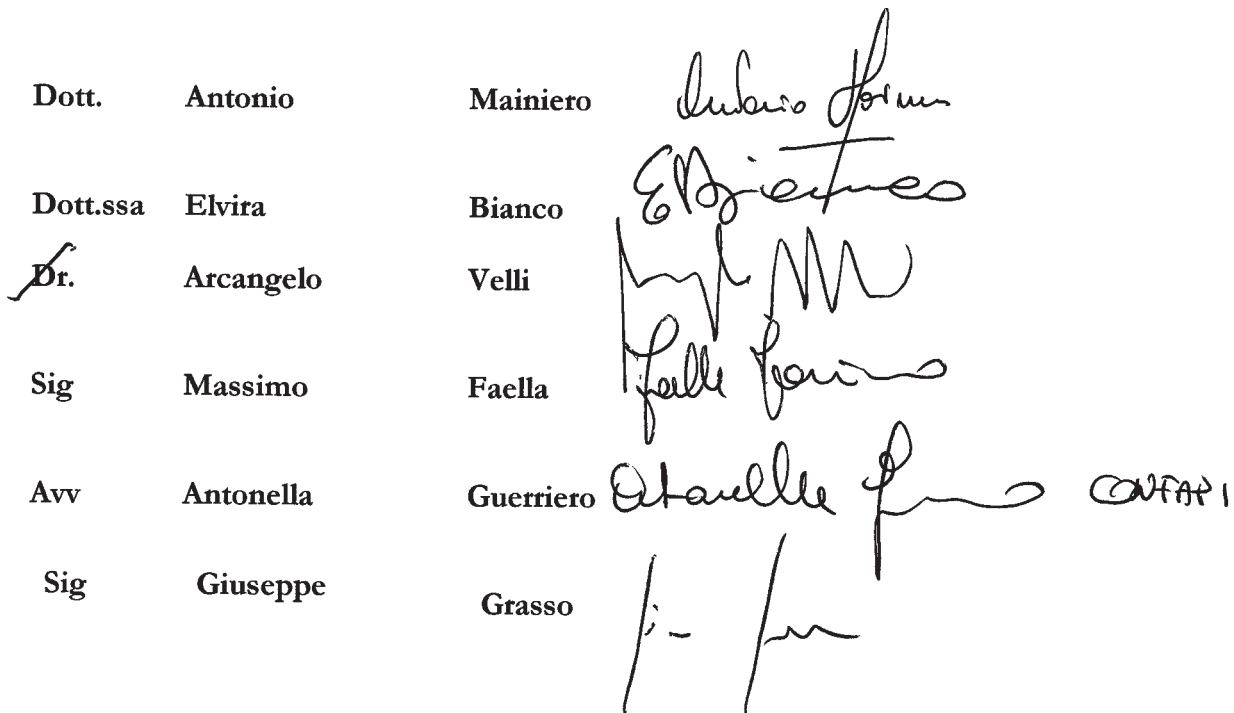 Dott. Antonio Mainiero Antonio
Dott.ssa Elvira Bianco EBianco
Dr. Arcangelo Velli
Sig Massimo Faella
Avv Antonella Guerriero Antonella CONFAPI
Sig Giuseppe Grasso